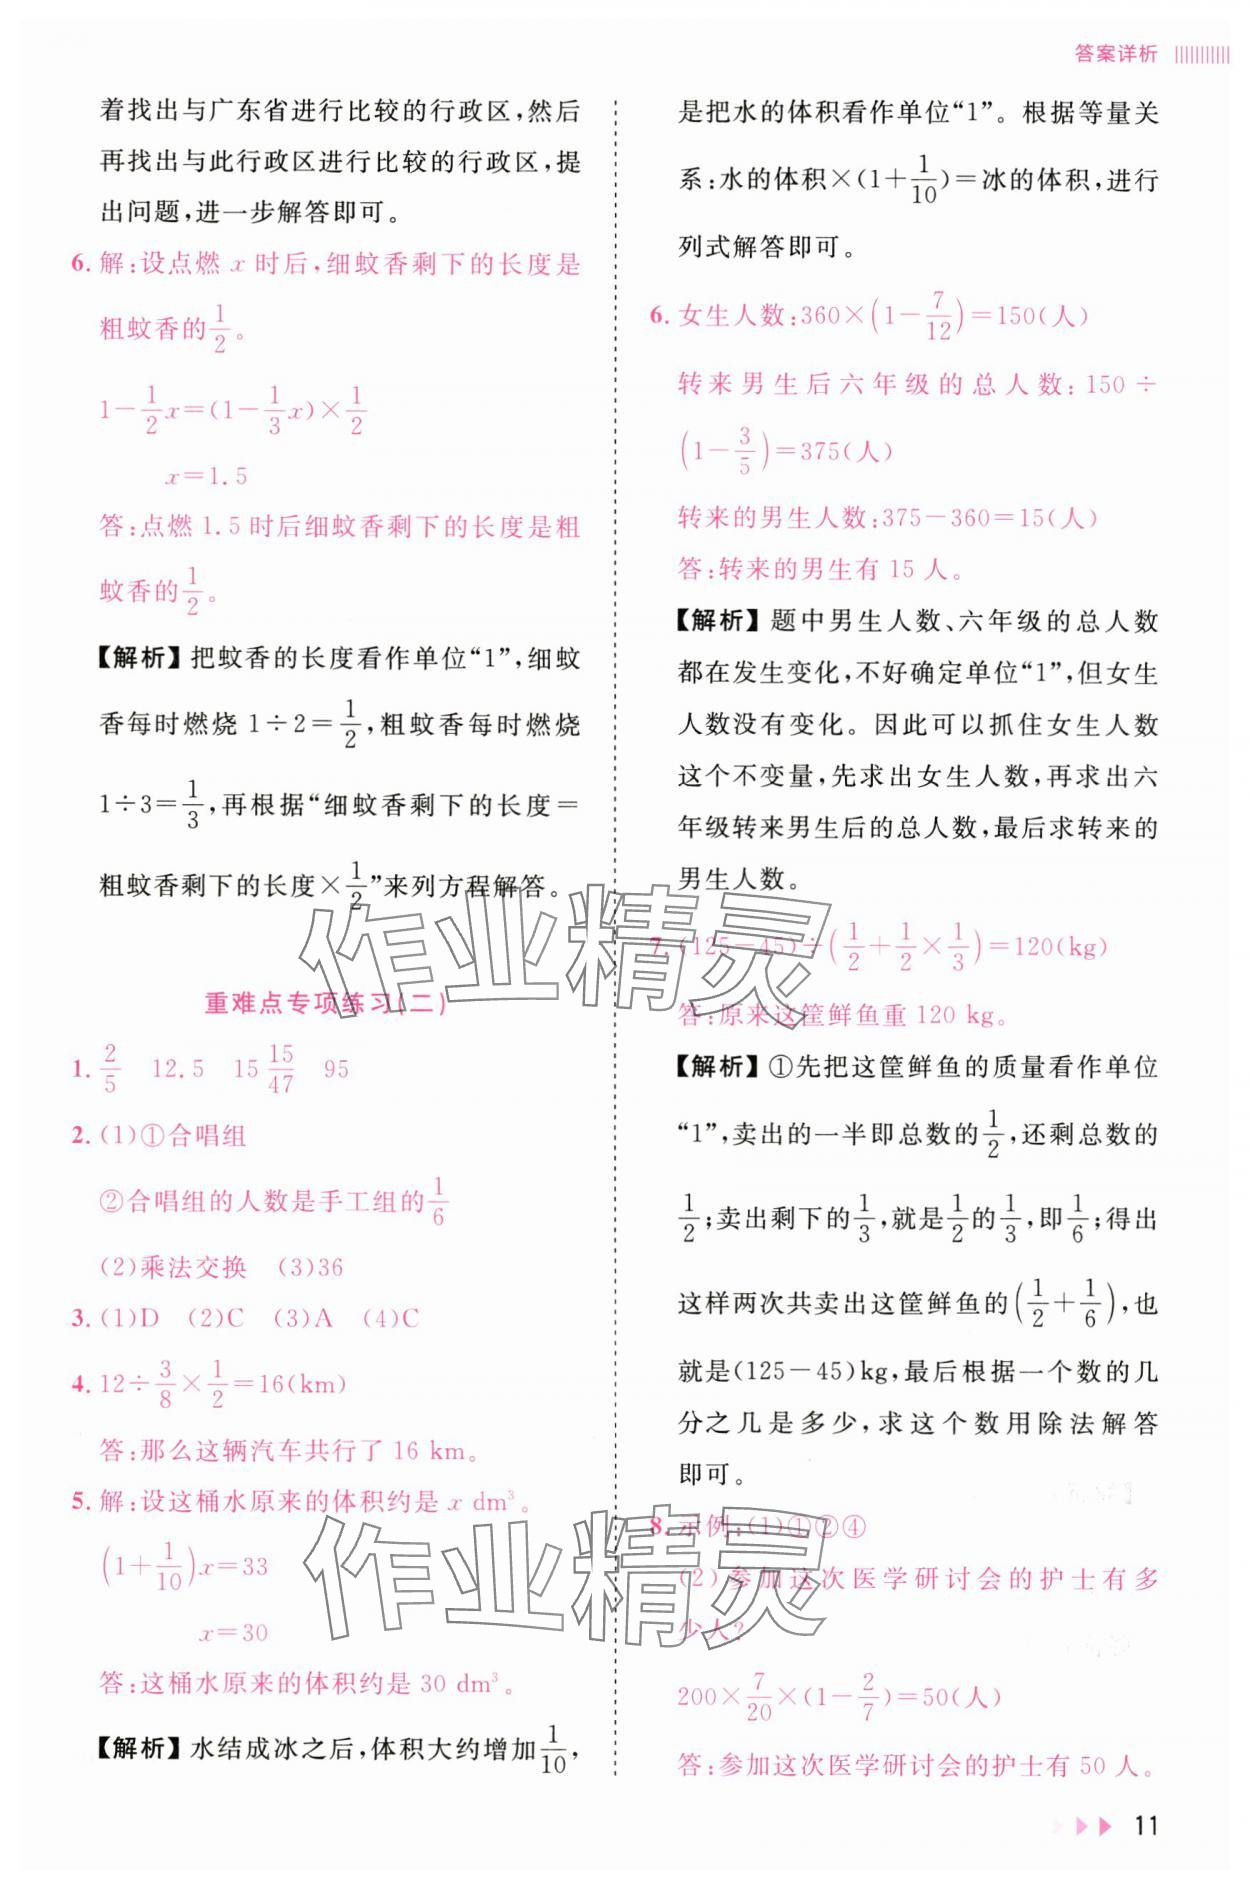 答案详析
着找出与广东省进行比较的行政区,然后
再找出与此行政区进行比较的行政区,提
出问题,进一步解答即可。
6. 解:设点燃 x 时后,细蚊香剩下的长度是
粗蚊香的1/2。
1-1/2x=(1-1/3x)×1/2
x=1.5
答:点燃 1.5 时后细蚊香剩下的长度是粗
蚊香的1/2。
【解析】把蚊香的长度看作单位“1”,细蚊
香每时燃烧 1÷2=1/2,粗蚊香每时燃烧
1÷3=1/3,再根据“细蚊香剩下的长度=
粗蚊香剩下的长度×1/2”来列方程解答。
重难点专项练习(二)
1. 2/5 12.5 15 15/47 95
2. (1)①合唱组
②合唱组的人数是手工组的1/6
(2)乘法交换 (3)36
3. (1)D (2)C (3)A (4)C
4. 12÷3/8×1/2=16(km)
答:那么这辆汽车共行了 16 km。
5. 解:设这桶水原来的体积约是 x dm³。
(1+1/10)x=33
x=30
答:这桶水原来的体积约是 30 dm³。
【解析】水结成冰之后,体积大约增加1/10,
是把水的体积看作单位“1”。根据等量关
系:水的体积×(1+1/10)=冰的体积,进行
列式解答即可。
6. 女生人数:360×(1-7/12)=150(人)
转来男生后六年级的总人数:150÷
(1-3/5)=375(人)
转来的男生人数:375-360=15(人)
答:转来的男生有 15 人。
【解析】题中男生人数、六年级的总人数
都在发生变化,不好确定单位“1”,但女生
人数没有变化。因此可以抓住女生人数
这个不变量,先求出女生人数,再求出六
年级转来男生后的总人数,最后求转来的
男生人数。
7. (125-45)÷(1/2+1/2×1/3)=120(kg)
答:原来这筐鲜鱼重 120 kg。
【解析】①先把这筐鲜鱼的质量看作单位
“1”,卖出的一半即总数的1/2,还剩总数的
1/2;卖出剩下的1/3,就是1/2的1/3,即1/6;得出
这样两次共卖出这筐鲜鱼的(1/2+1/6),也
就是(125-45)kg,最后根据一个数的几
分之几是多少,求这个数用除法解答
即可。
8. 示例:(1)①②④
(2)参加这次医学研讨会的护士有多
少人?
200×7/20×(1-2/7)=50(人)
答:参加这次医学研讨会的护士有 50 人。
11
作业精灵
作业精灵